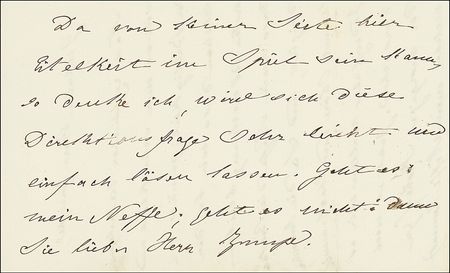 Da von keiner Seite hier
Eitelkeit im Spiel sein kann,
so denke ich, wird sich diese
Direktionsfrage sehr leicht und
einfach lösen lassen. Geht es:
mein Neffe; geht es nicht: dann
Sie lieber Herr Zumpe.